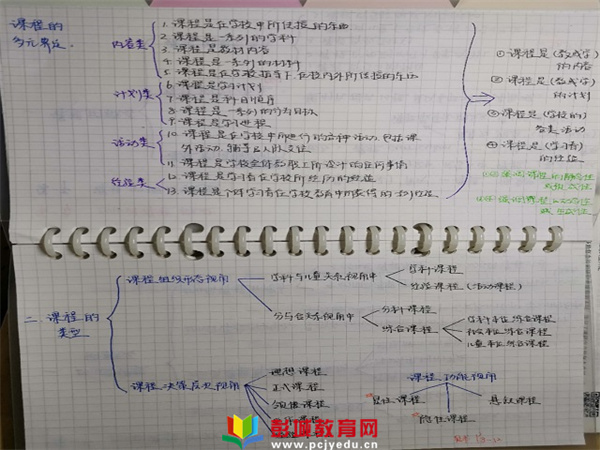 课程的
多元界定.
内容类
1. 课程是在学校中所传授的东西
2. 课程是一系列的学科
3. 课程是教材内容
4. 课程是一系列的材料
5. 课程是在学校指导下,在校内外所传授的东西
计划类
6. 课程是学习计划
7. 课程是科目顺序
8. 课程是一系列的行为目标
9. 课程是学习进程
活动类
10. 课程是在学校中所进行的各种活动,包括课
外活动、辅导及人际交往
11. 课程是学校全体教职工所设计的任何事情
经验类
12. 课程是学习者在学校所经历的经验
13. 课程是个体学习者在学校教育中所获得的
① 课程是(教或学)
的内容
② 课程是(教或学)
的计划
③ 课程是(学校的)
各类活动
④ 课程是(学习者)
的经验
二.课程的
类型
课程组织形态视角
学科与儿童关系视角中
学科课程
经验课程(活动课程)
分与合关系视角中
分科课程
综合课程
学科本位综合课程
社会本位综合课程
儿童本位综合课程
课程决策层次视角
理想课程
正式课程
领悟课程
课程功能视角
显性课程
隐性课程
悬缺课程
彭城教育网
www.pcjyedu.cn